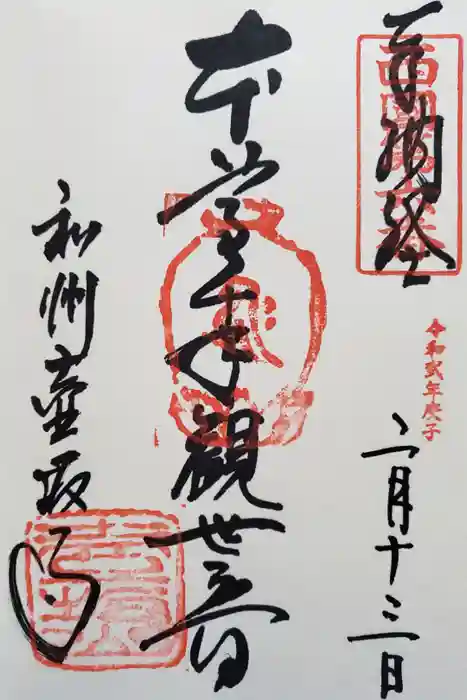 西国第六番
令和弐年庚子
二月十三日
本堂千手観世音
和州壷阪寺